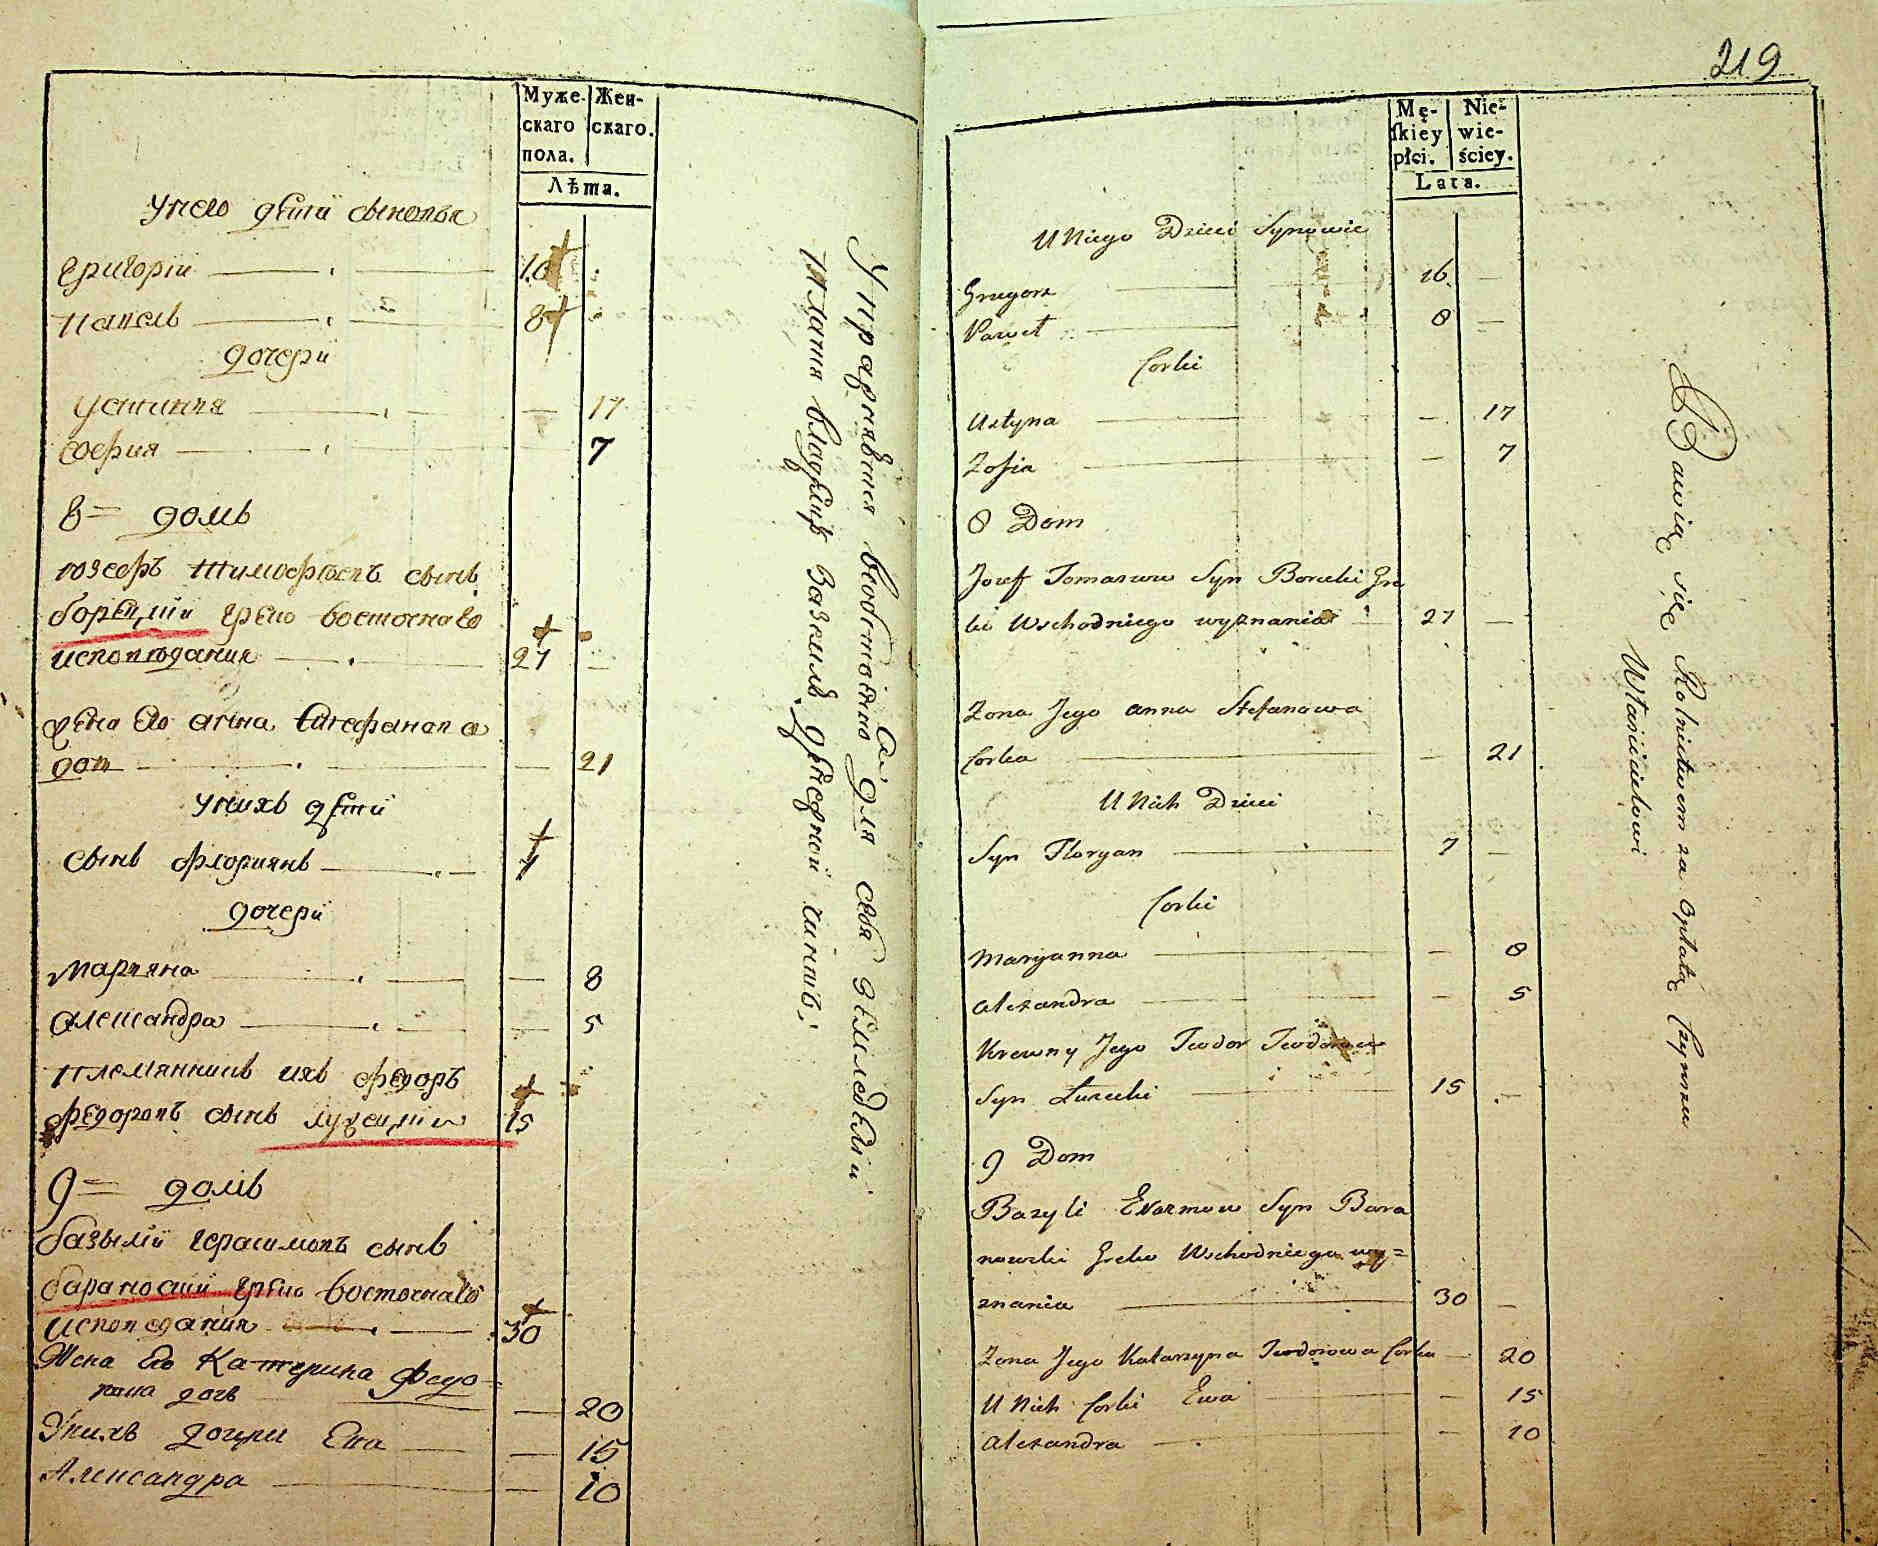 Муже-
скаго
пола.
Жен-
скаго.
Лѣта.
Унего дѣти сыновья
Григории 16
Павелъ 8
дочери
Устиния — 17
София — 7
8= домъ
Юзефъ Тимофѣевъ сынъ
Борецкии греко восточнаго
исповѣдания 27 —
жена Его анна Стефанова
доч — 21
Унихъ дѣти
сынъ Флориянъ 7
дочери
Марияна — 8
Александра — 5
племянникъ ихъ Федоръ
Федоровъ сынъ 15
9= домъ
базылии Герасимовъ сынъ
барановский греко восточнаго
исповедания 30
Жена Его Катерина Федо=
рова дочь — 20
Унихъ дочери Ева — 15
Александра — 10
Упражняется
для себя земледелии
платя владелцу
219
Mę-
skiey
płci.
Nie-
wie-
ściey.
Lata.
U Niego Dzieci Synowie
Grzegorz 16 —
Paweł 8 —
Corki
Ustyna — 17
Zofia — 7
8 Dom
Jozef Tomaszow Syn Borecki Gre
ko Wschodniego wyznania 27 —
Zona Jego anna Stefanowa
Corka — 21
U Nich Dzieci
Syn Floryan 7 —
Corki
Maryanna — 8
alexandra — 5
Krewny Jego Teodor Teodorow
Syn Łuzecki 15 —
9 Dom
Bazyli Syn Bara
nowski Greko Wschodniego wy=
znania 30 —
Zona Jego Katarzyna Teodorowa Corka — 20
U Nich Corki Ewa — 15
alexandra — 10
Bawią się Rolnictwem za opłatę Czynszu
Właścicielowi